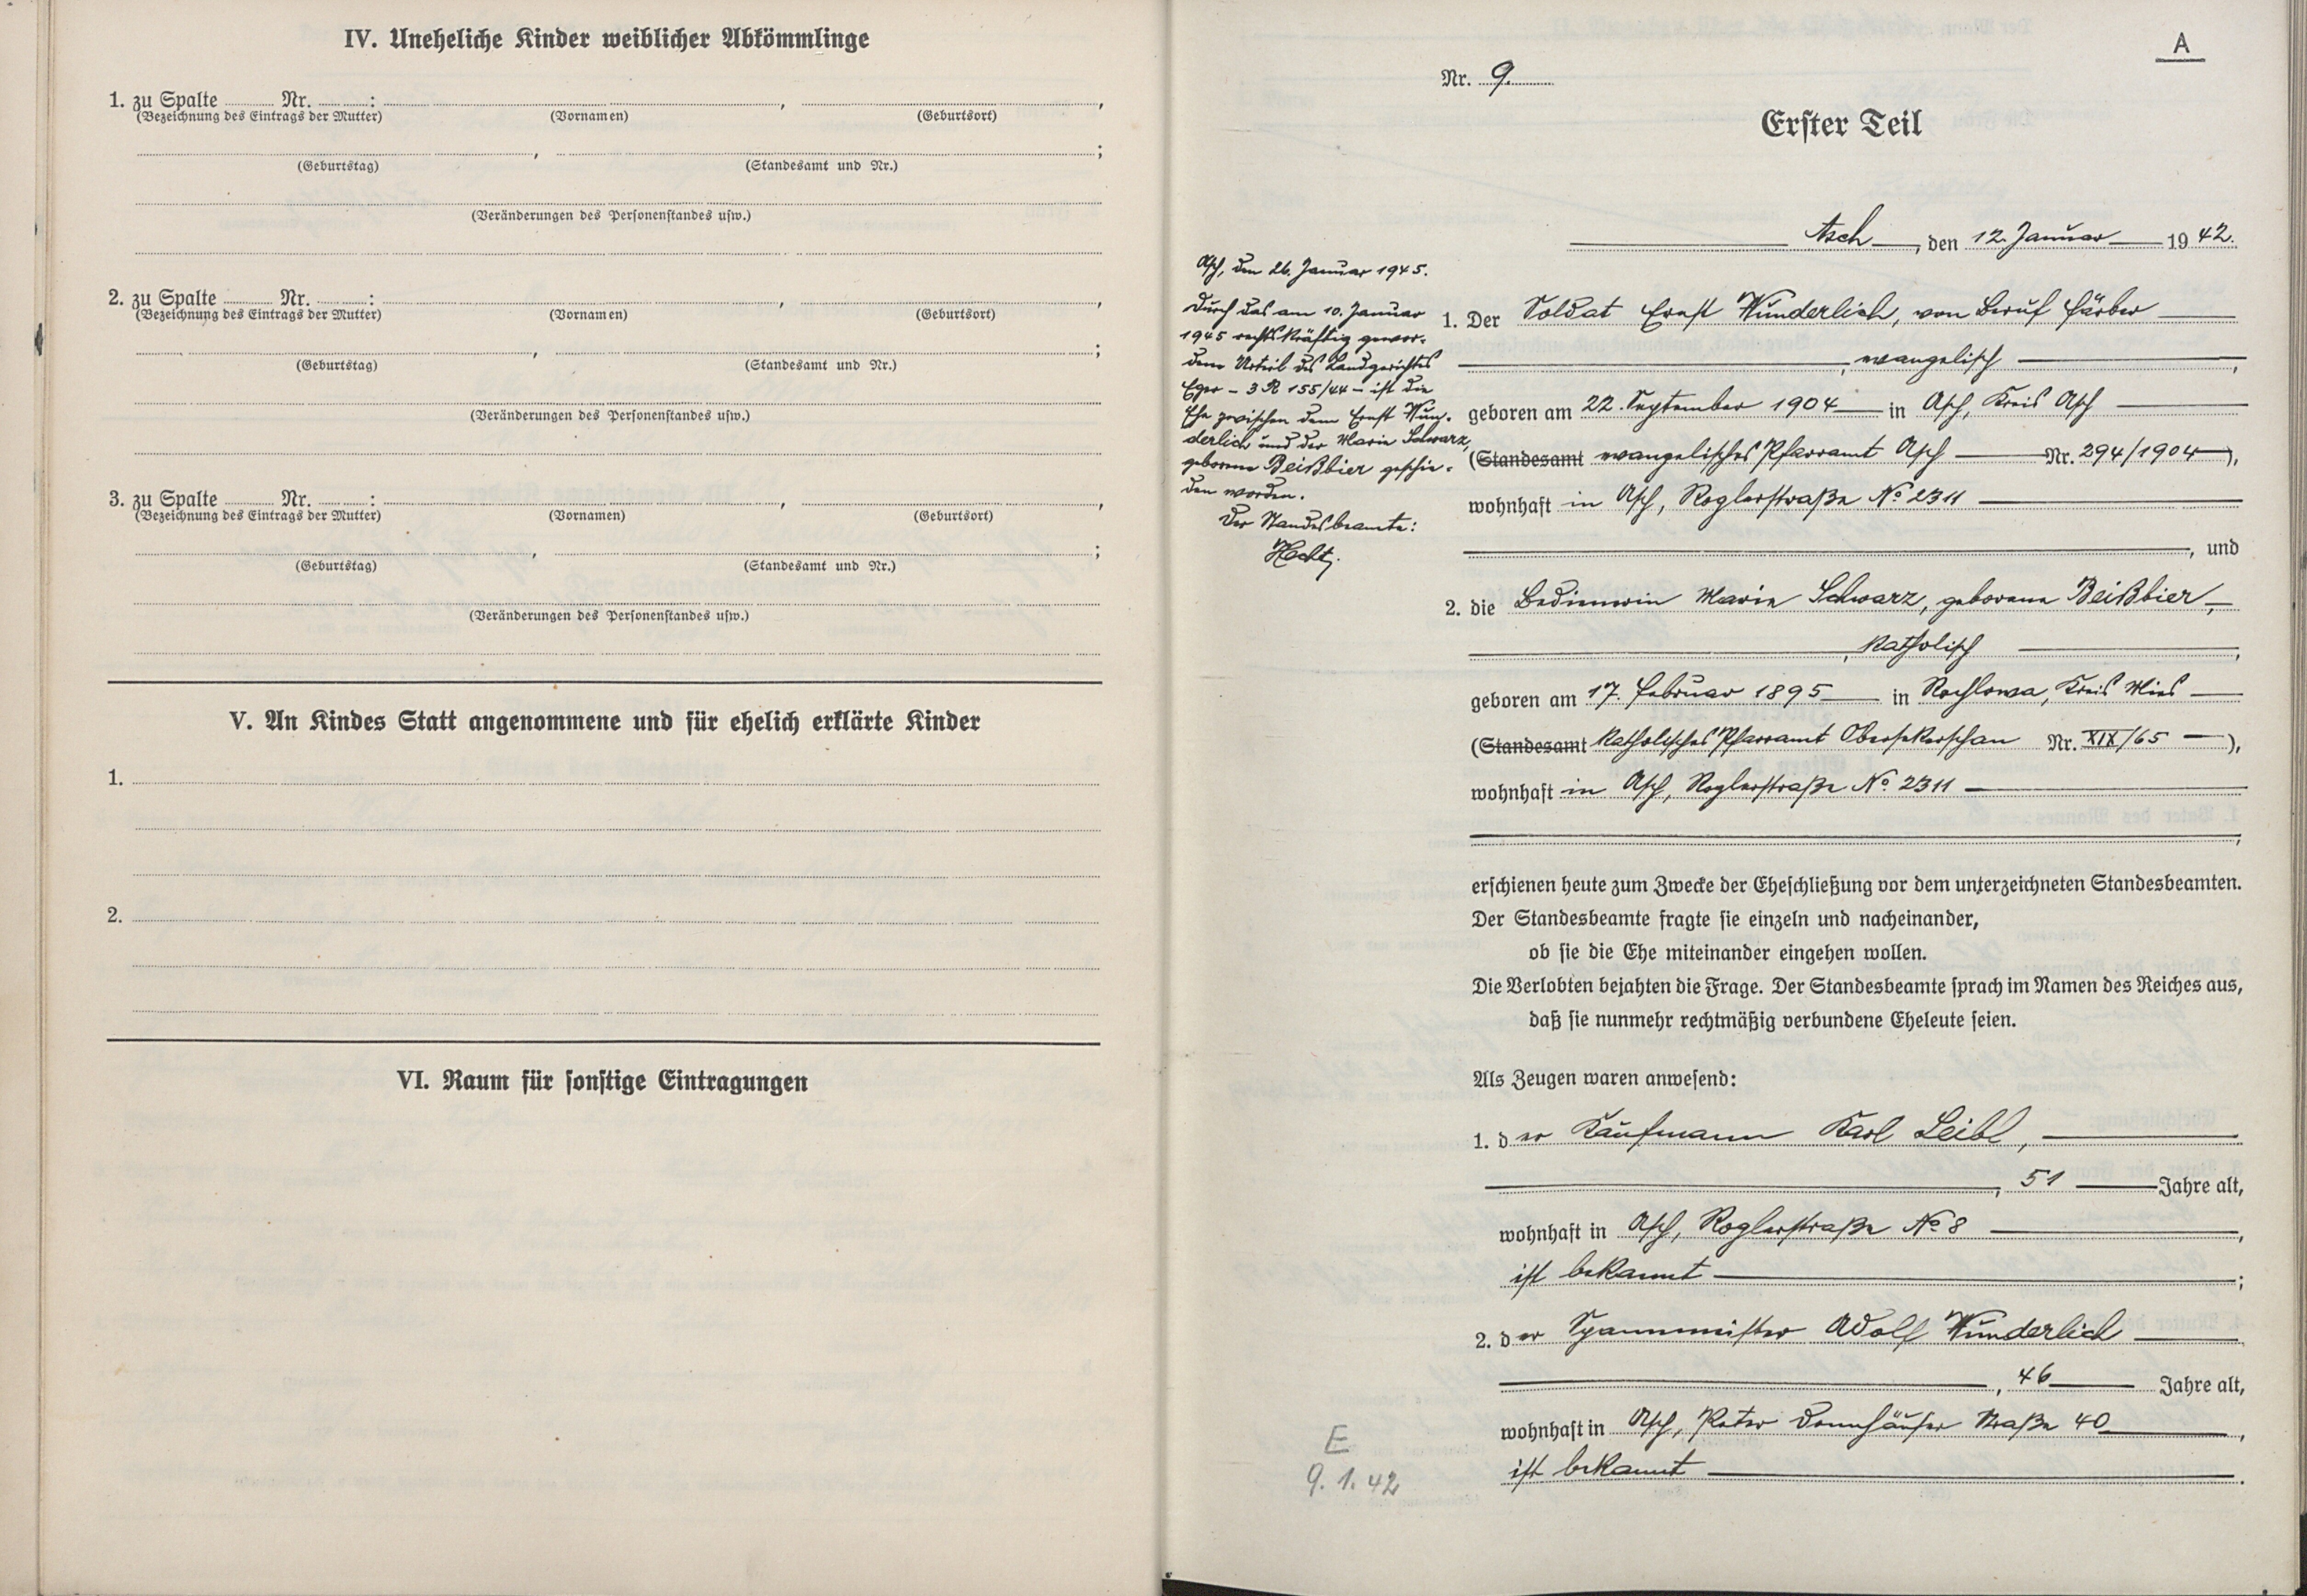 IV. Uneheliche Kinder weiblicher Abkömmlinge
1. zu Spalte Nr. : , ,
(Bezeichnung des Eintrags der Mutter) (Vornamen) (Geburtsort)
, ;
(Geburtstag) (Standesamt und Nr.)
(Veränderungen des Personenstandes usw.)
2. zu Spalte Nr. : , ,
(Bezeichnung des Eintrags der Mutter) (Vornamen) (Geburtsort)
, ;
(Geburtstag) (Standesamt und Nr.)
(Veränderungen des Personenstandes usw.)
3. zu Spalte Nr. : , ,
(Bezeichnung des Eintrags der Mutter) (Vornamen) (Geburtsort)
, ;
(Geburtstag) (Standesamt und Nr.)
(Veränderungen des Personenstandes usw.)
V. An Kindes Statt angenommene und für ehelich erklärte Kinder
1.
2.
VI. Raum für sonstige Eintragungen
A
Nr. 9.
Erster Teil
Asch, den 12. Januar 1942.
Asch, den 26. Januar 1945.
Durch das am 10. Januar
1945 rechtskräftig gewor-
dene Urteil des Landgerichtes
Eger - 3 R 155/44 - ist die
Ehe zwischen dem Ernst Wun-
derlich und der Marie Schwarz,
geborene Beißbier geschie-
den worden.
Der Standesbeamte:
Hecht.
1. Der Soldat Ernst Wunderlich, von Beruf Färber
, evangelisch ,
geboren am 22. September 1904 in Asch, Kreis Asch
(Standesamt evangelisches Pfarramt Asch Nr. 294/1904),
wohnhaft in Asch, Roglerstraße No 2311
, und
2. die Bedienerin Marie Schwarz, geborene Beißbier,
, katholisch ,
geboren am 17. Februar 1895 in Rochlowa, Kreis Mies
(Standesamt katholisches Pfarramt Obersekerschan Nr. XIX/65),
wohnhaft in Asch, Roglerstraße No 2311
,
erschienen heute zum Zwecke der Eheschließung vor dem unterzeichneten Standesbeamten.
Der Standesbeamte fragte sie einzeln und nacheinander,
ob sie die Ehe miteinander eingehen wollen.
Die Verlobten bejahten die Frage. Der Standesbeamte sprach im Namen des Reiches aus,
daß sie nunmehr rechtmäßig verbundene Eheleute seien.
Als Zeugen waren anwesend:
1. der Kaufmann Karl Leibl,
, 51 Jahre alt,
wohnhaft in Asch, Roglerstraße No 8 ,
ist bekannt ;
2. der Spannmeister Adolf Wunderlich
, 46 Jahre alt,
wohnhaft in Asch, Peter Donnhäuser Straße 40 ,
ist bekannt .
E
9. 1. 42